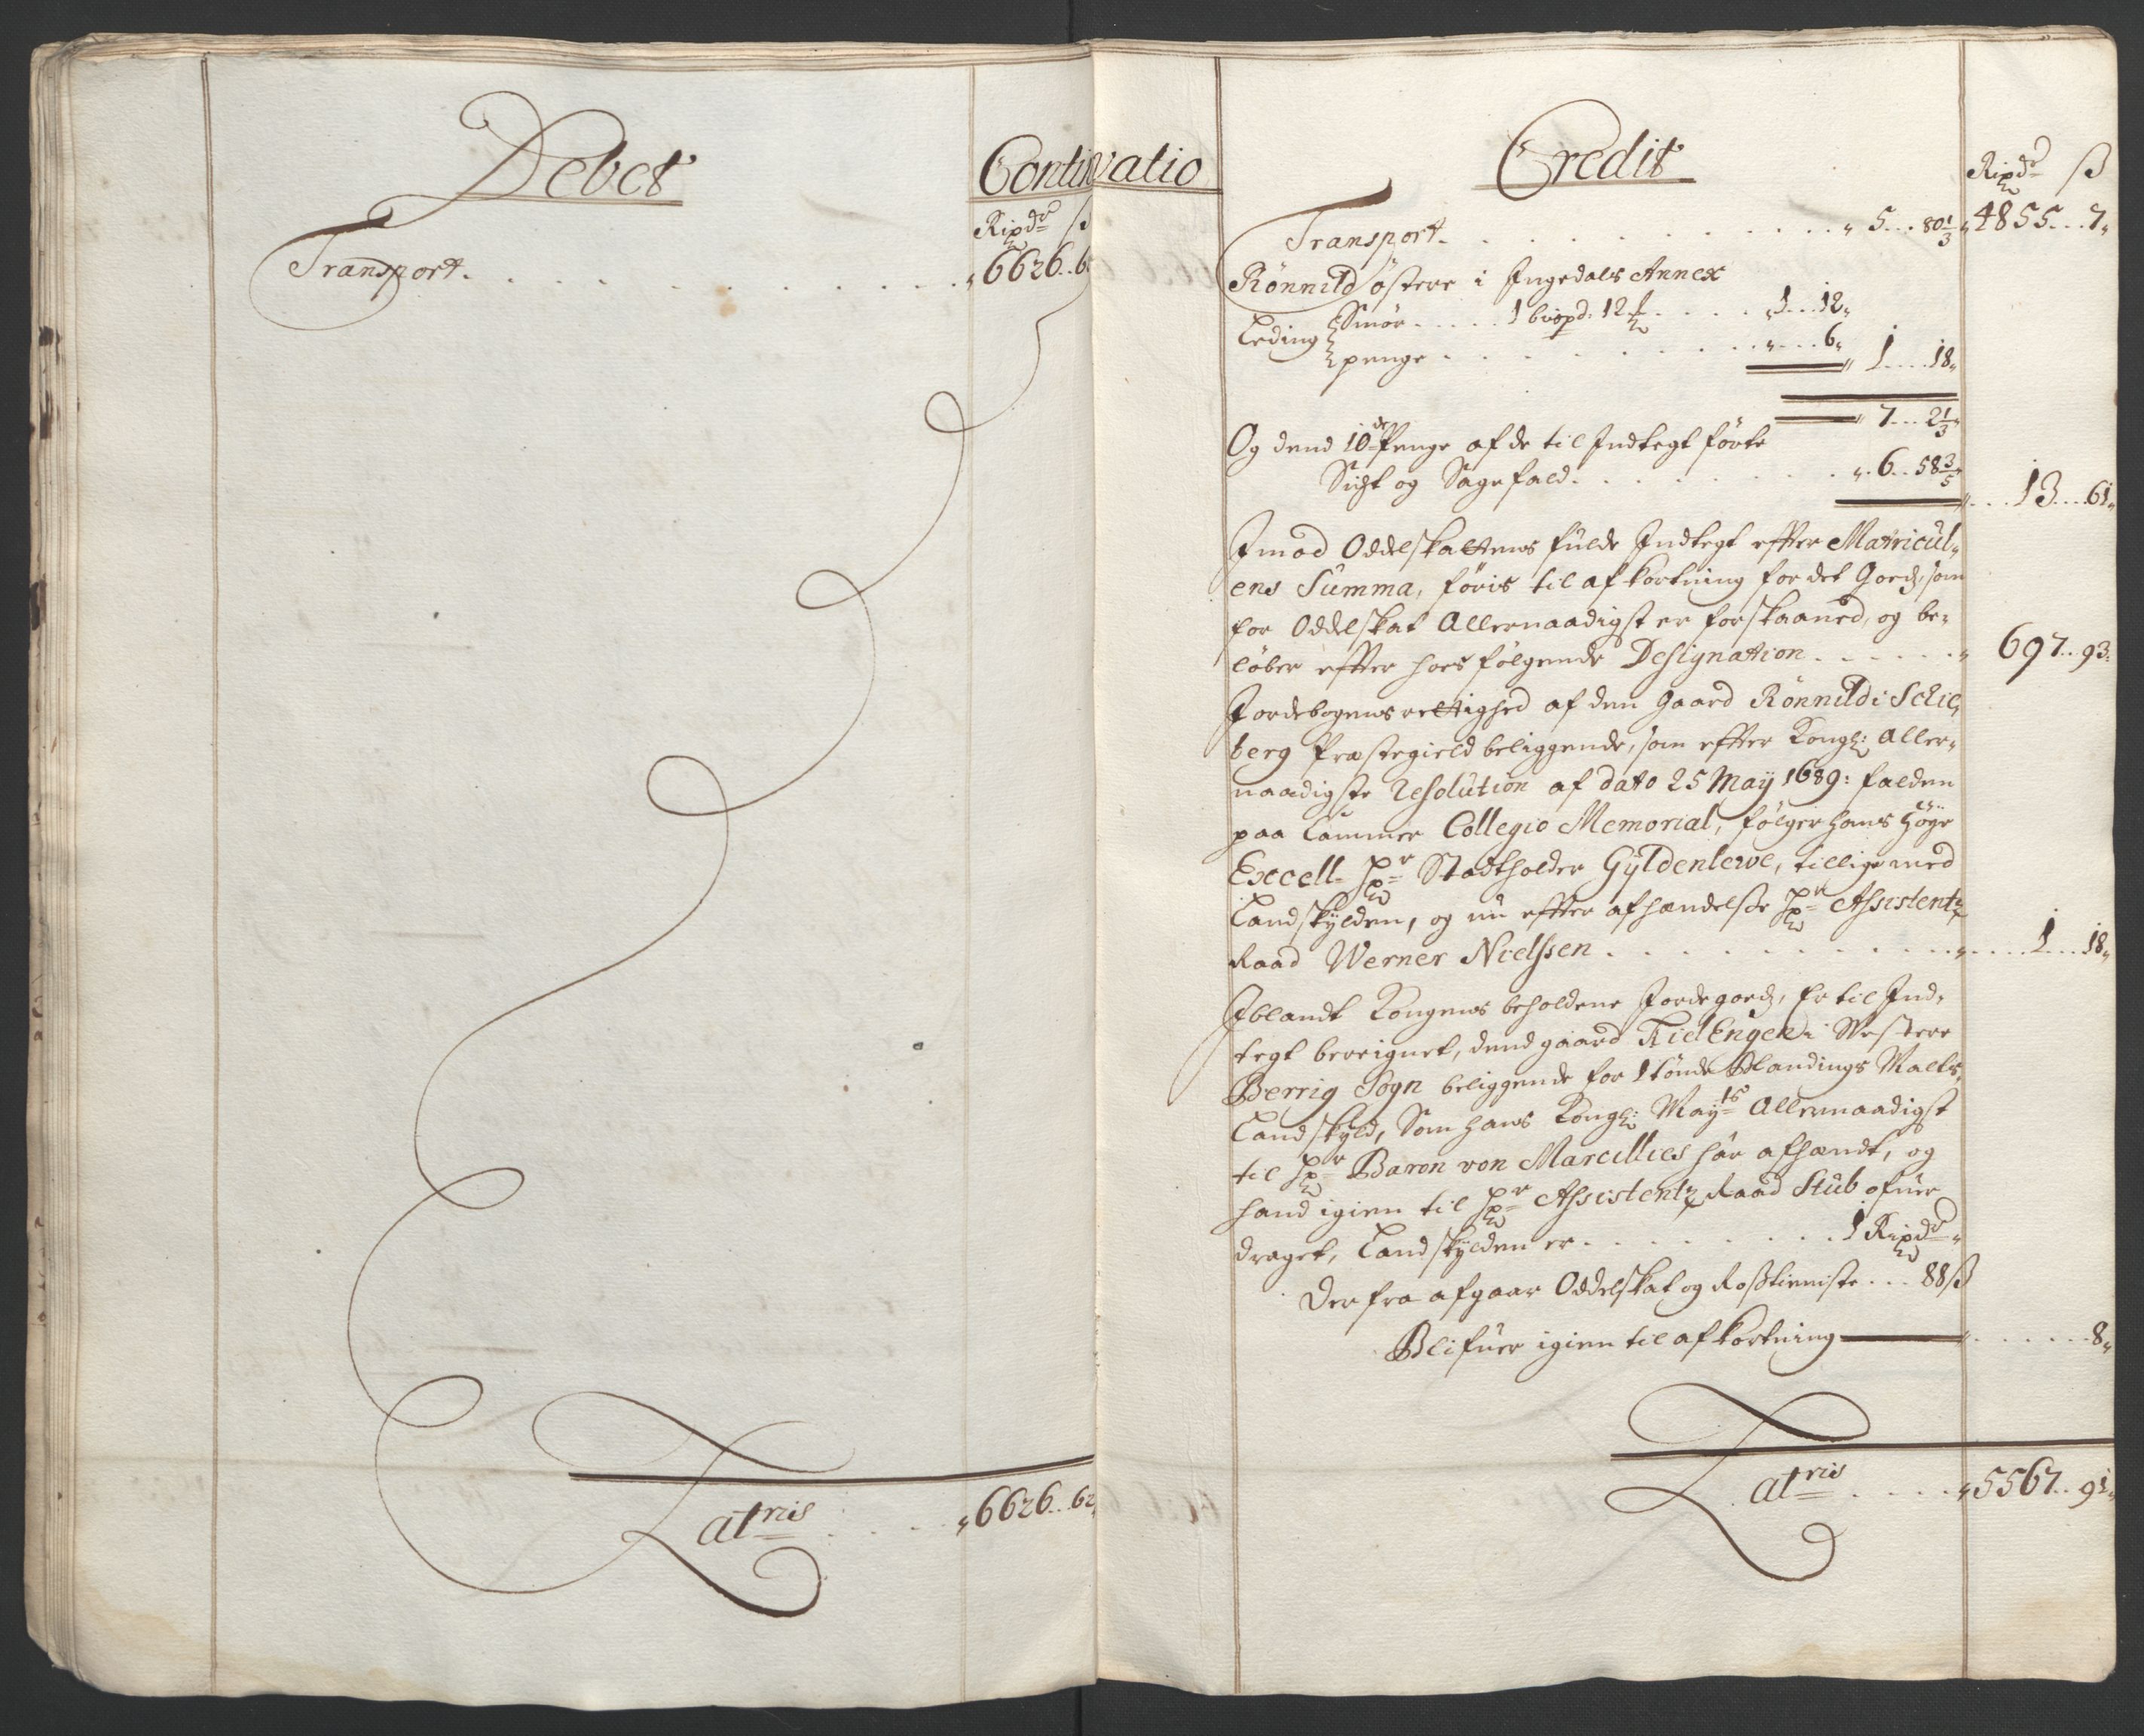 Debet
Continvatio
Ripdr ß
Transport. . . . . . . . . . . . 6626..6
Latris . . . . 6626..62
Credit
Ripdr ß
Transport. . . . . . . . . . . 5...80 1/3 4855...7
Rönnild østere i Ingedals Annex
Leding Smör . . . . . 1 bispd. 12 . . . . . 1...12
penge . . . . . . . . . . 6
1....18
7...2 1/3
Og dend 10de Penge af de til Indtegt førte
Sigt og Sagefald. . . . . . . . . 6..58 3/5
13...61
Imod Oddelskattens fulde Indtegt effter Matricul-
ens Summa, føris til afkortning for det Gods, som
for Oddelskat Allernaadigst er forskaaned, og be-
løber effter hoes følgende Designation . . . . . . 697..93
Jordebogens rettighed af den Gaard Rönnild i Schie-
berg Præstegield beliggende, som effter Kongl: Aller-
naadigste Resolution af dato 25 May 1689: falden
paa Cammer Collegio Memorial, følger hans Høye
Excell. Hr Stadtholder Gyldenlewe, tillige med
Landskylden, og nu effter afhændelse Hr Assistentz
Raad Werner Nielssen . . . . . . . . . . . . 1...18
Iblandt Kongens beholdene Jordegods, er til Ind-
tegt bereignet, dend gaard KielEngen i Westere
Berrig Sogn beliggende for 1 tönde Blandings Malts
Landskyld, Som hans Kongl: Mayts Allernaadigst
til Hr Baron von Marcillies har afhændt, og
hand igien til Hr Assistentz Raad Stub ofuer
draget, Landskylden er . . . . . . . . 1 Ripdr
Der fra afgaar Oddelskat og Rosstieniste . . . 88ß
Blifuer igien til afkortning . . . . . . 8
Latris . . . . 5567..91